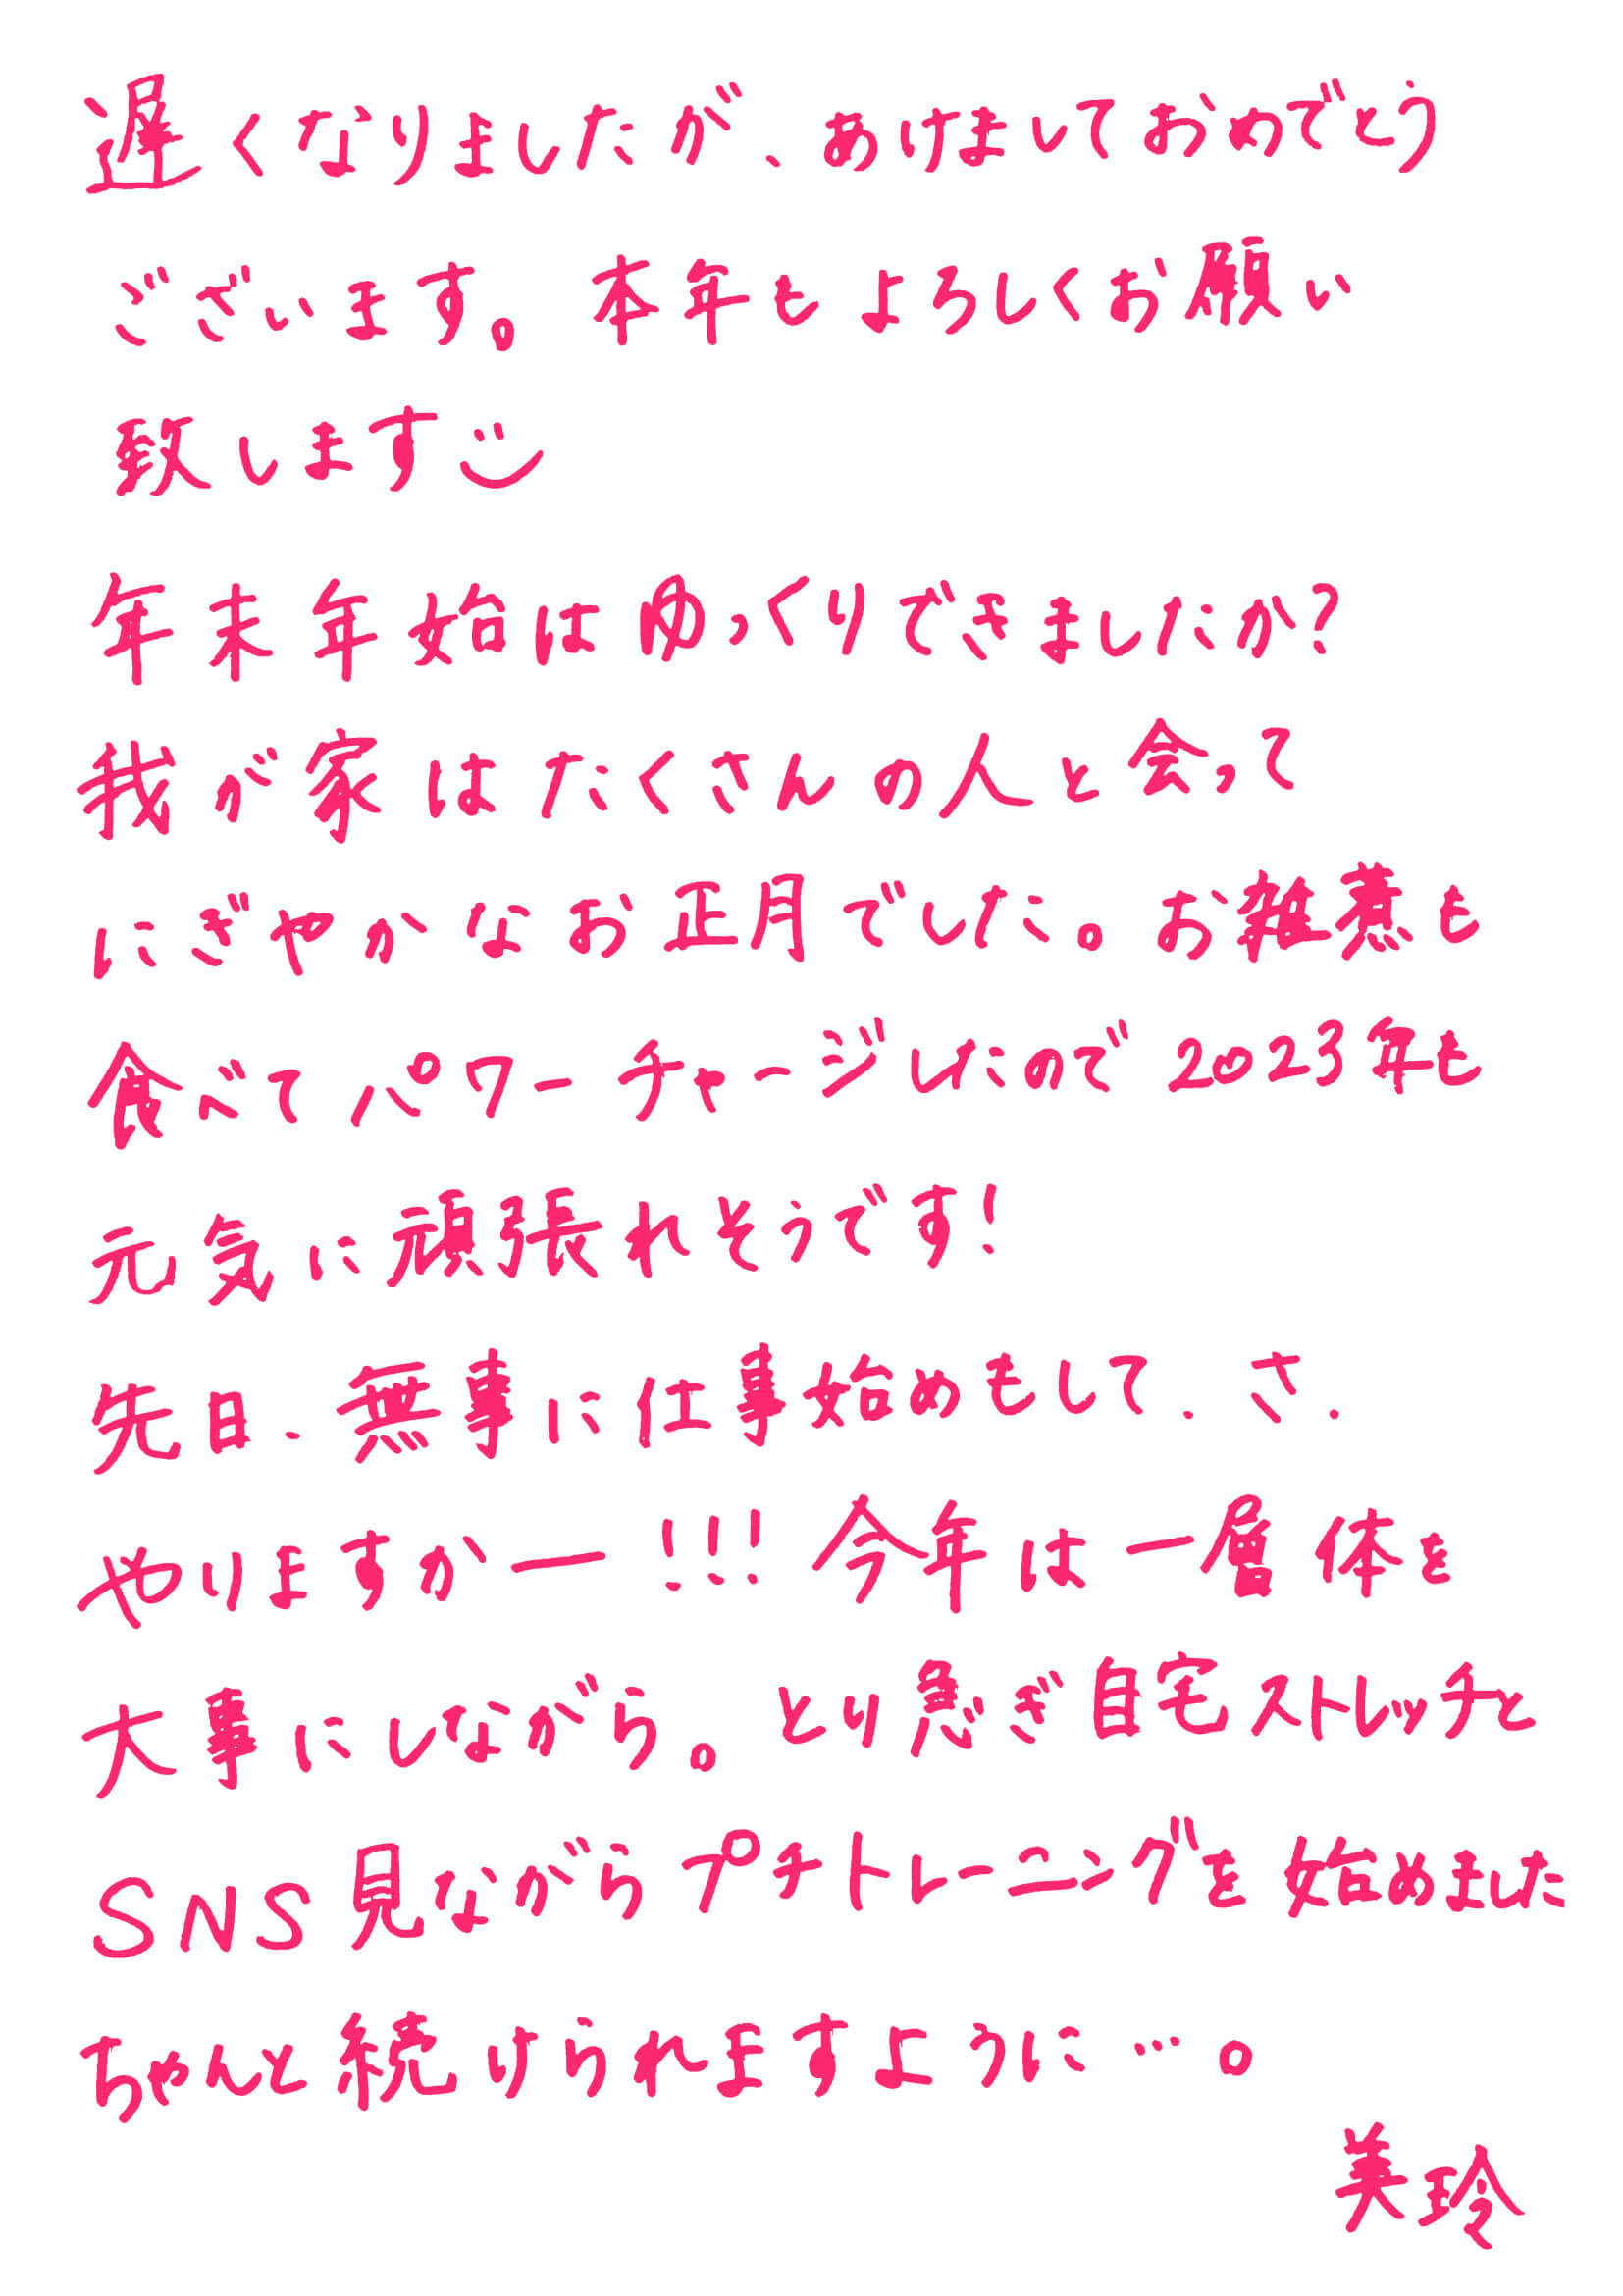 遅くなりましたが、あけましておめでとう
ございます。本年もよろしくお願い
致します
年末年始はゆっくりできましたか?
我が家はたくさんの人と会って
にぎやかなお正月でした。お雑煮も
食べてパワーチャージしたので2023年も
元気に頑張れそうです!
先日、無事に仕事始めもして、さ、
やりますかー!!!今年は一層体を
大事にしながら。とり急ぎ自宅ストレッチと
SNS見ながらプチトレーニングを始めました
ちゃんと続けられますように…。
美玲